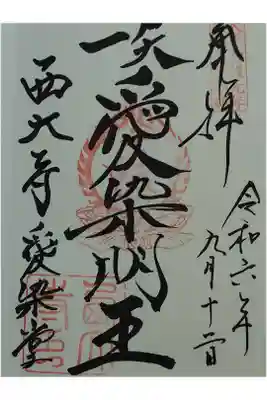 奉拝
令和六年
九月十二日
愛染明王
西大寺愛染堂